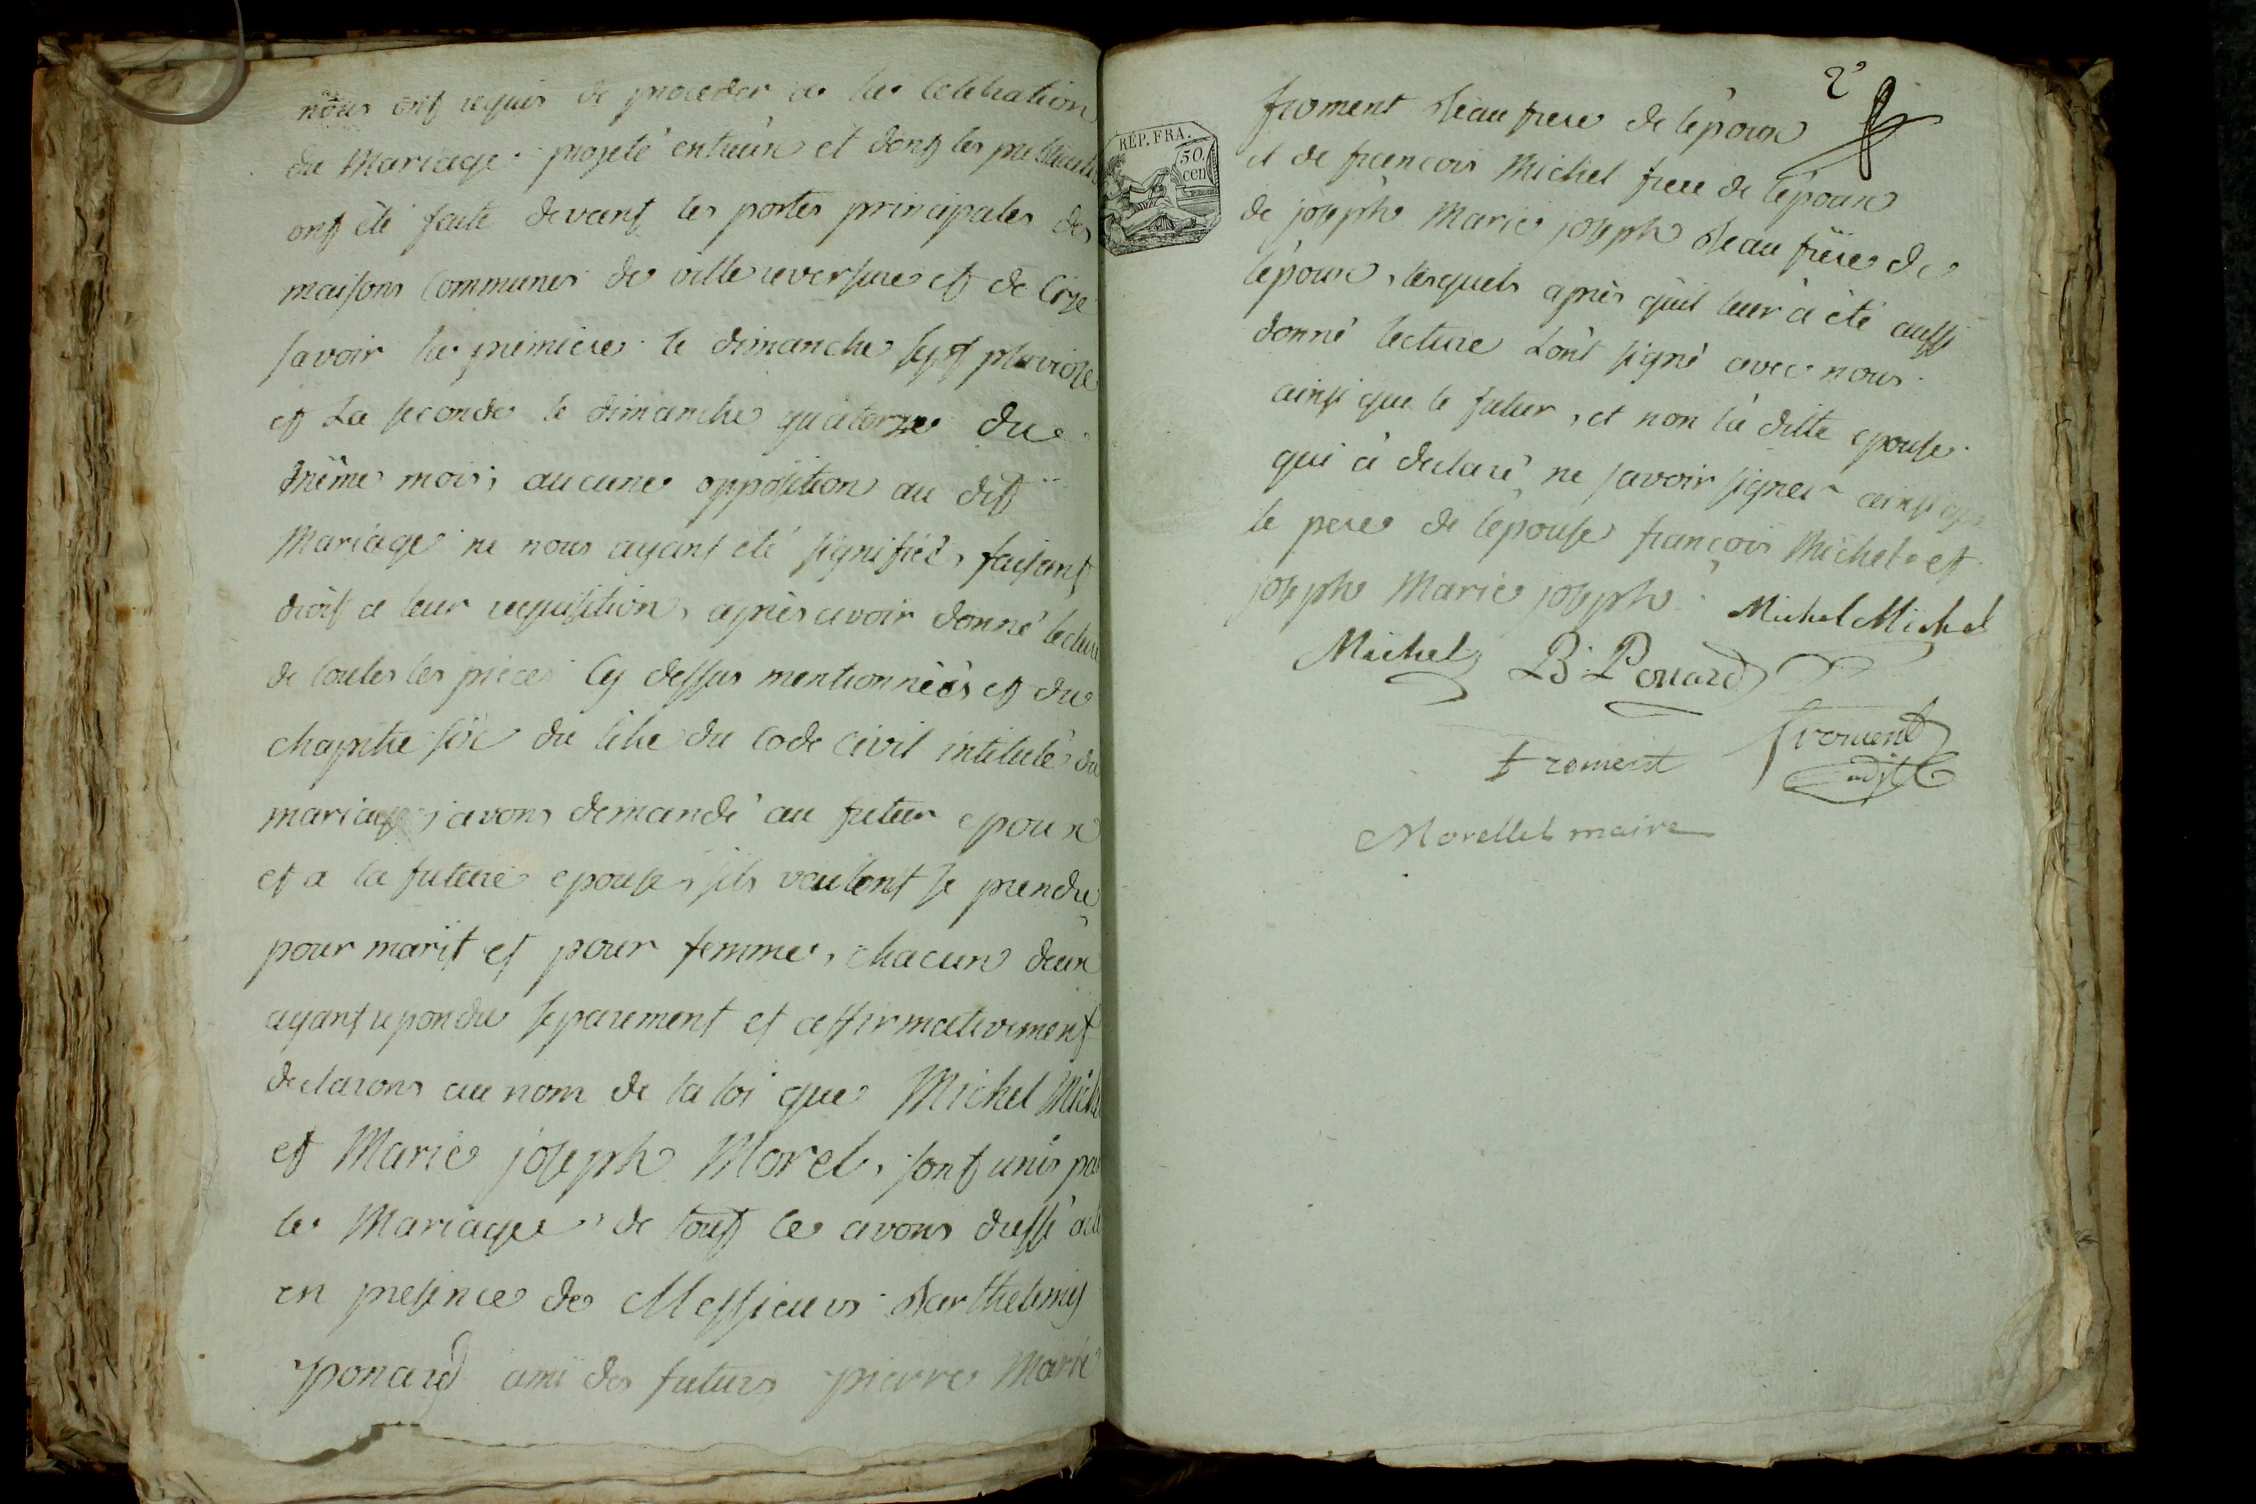 nous ont requis de proceder a la celebration
du Mariage projeté entreûx et dont les publications
ont été faite devant les portes principales des
maisons Communes de villereversure et de Cize
savoir la premiere le dimanche sept pluviose
et La seconde le dimanche quatorze du
même mois, aucune opposition au dit
Mariage ne nous ayant été signifiée, faisant
droit a leur requisition, après avoir donné lecture
de toutes les pièces Cy dessus mentionnées et du
chapitre six du titre du Code Civil intitulé du
mariage, avons demandé au futur epoux
et a la future epouse, sils veulent se prendre
pour marit et pour femme, chacun deux
ayant repondu separement et affirmativement
declarons au nom de la loi que Michel Michel
et Marie joseph Morel, sont unis par
le Mariage de tout ce avons dressé acte
en presence de Messieurs Barthelemy
ponard ami des futurs pierre Marie
2e
froment Beau frere de lépoux
RÉP. FRA.
50 cen
et de françois Michel frere de lépoux
de joseph Marie joseph Beau frère de
lépoux, lesquels après qûil leur à été aussi
donné lecture Lont signé avec nous
ainsi que le futur, et non la ditte epouse
qui à declaré ne savoir signer ainsi que
le pere de lépouse françois Michel et
joseph Marie joseph
Michel Michel
Michel B. Ponard
froment
Froment
Morellet maire